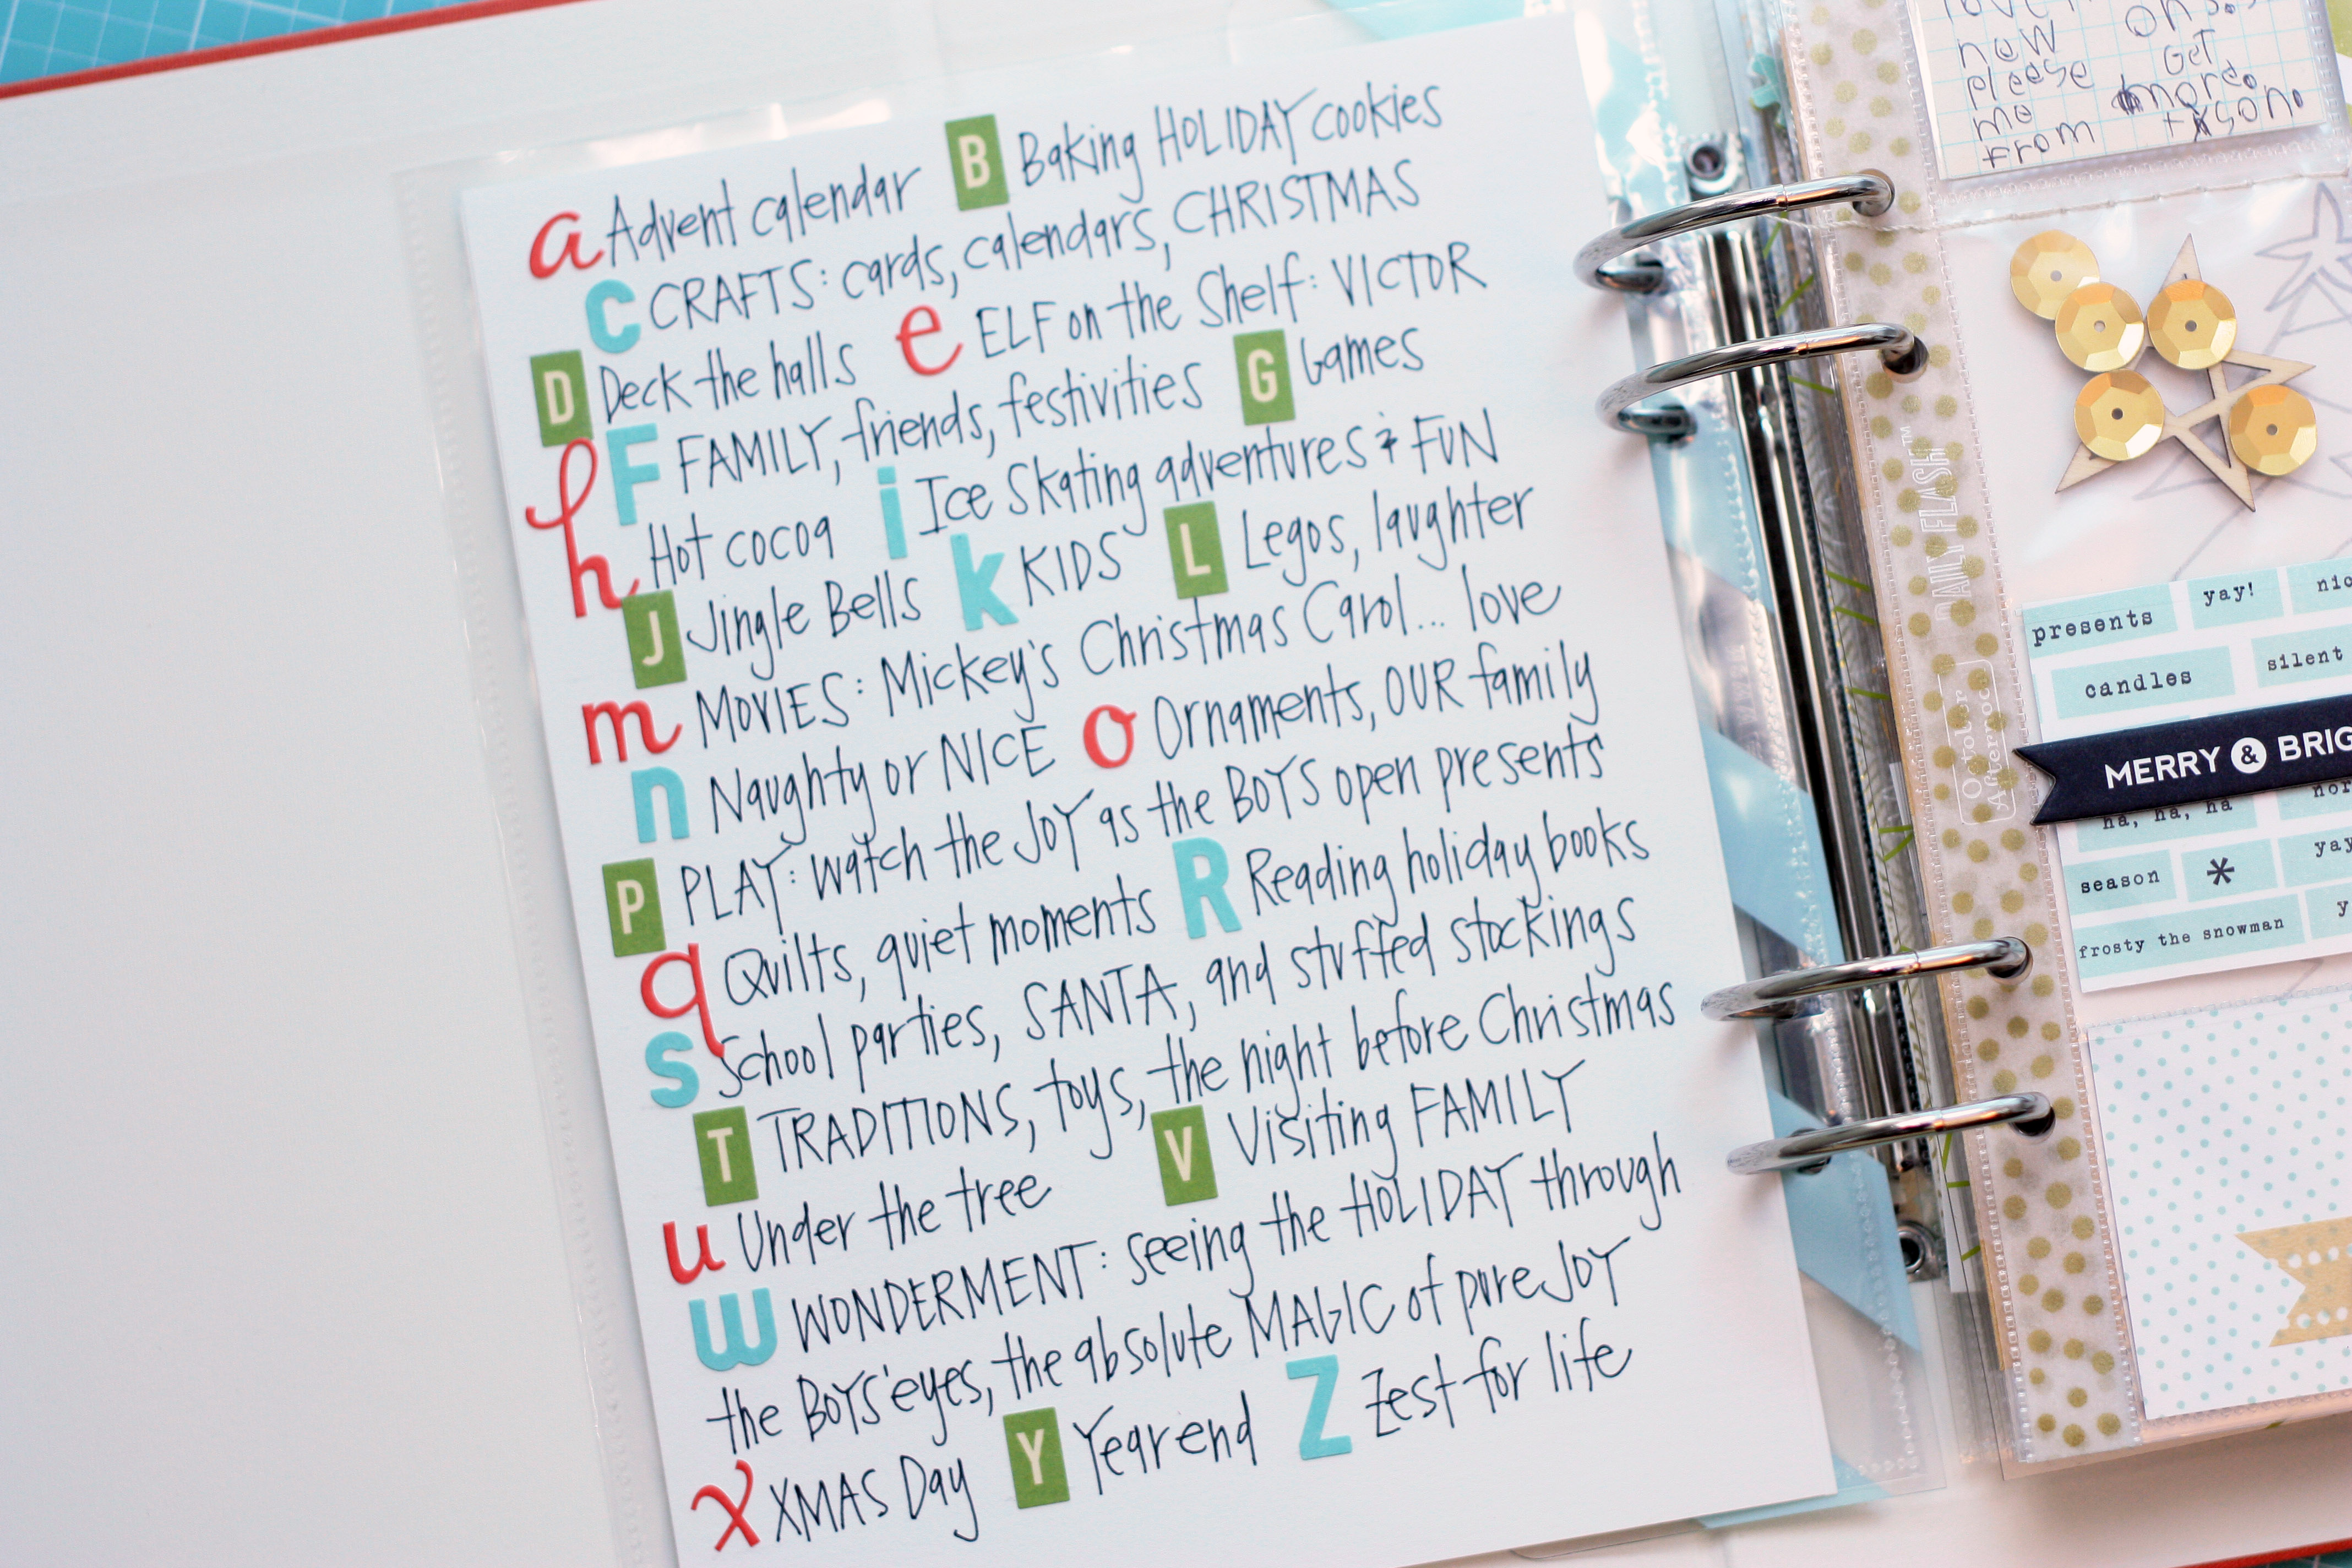 a Advent calendar B Baking HOLIDAY cookies
c CRAFTS: cards, calendars, CHRISTMAS
D Deck the halls e ELF on the Shelf: VICTOR
F FAMILY, friends, festivities G Games
h Hot cocoa i Ice Skating adventures & FUN
J Jingle Bells k KIDS L Legos, laughter
m MOVIES: Mickey's Christmas Carol... love
n Naughty or NICE o Ornaments, OUR family
P PLAY: watch the JOY as the BOYS open presents
q Quilts, quiet moments R Reading holiday books
s School parties, SANTA, and stuffed stockings
T TRADITIONS, toys, the night before Christmas
u Under the tree V Visiting FAMILY
w WONDERMENT: seeing the HOLIDAY through
the BOYS' eyes, the absolute MAGIC of pure JOY
x XMAS Day Y Year end Z Zest for life
new
please GET
me more.
from tyson.
DAILY FLASH™
October Afternoon
presents yay!
candles silent
MERRY &
ha, ha, ha
season * yay
frosty the snowman